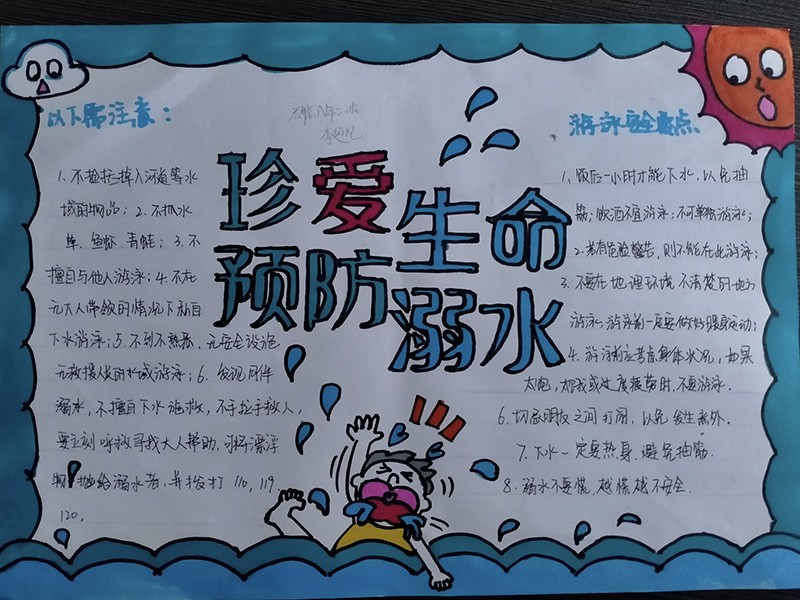 以下需注意：
1、不捡拾掉入河道等水
域的物品；2、不抓水
草、鱼虾、青蛙；3、不
擅自与他人游泳；4、不在
无大人带领的情况下私自
下水游泳；5、不到不熟悉、无安全设施
无救援人员的水域游泳；6、发现同伴
溺水，不擅自下水施救，不手拉手救人，
要立刻呼救寻找大人帮助，漂浮
物抛给溺水者，并拨打110、119、
120。
珍爱生命
预防溺水
游泳安全要点
1、饭后一小时才能下水，以免抽
筋；饮酒不宜游泳；不可单独游泳；
2、若有危险警告，则不能在此游泳；
3、不要在地理环境不清楚的地方
游泳；游泳前一定要做好暖身运动；
4、游泳前应考虑身体状况，如果
太饱、太饿或过度疲劳时，不要游泳．
6、切忌朋友之间打闹，以免发生意外．
7、下水一定要热身、避免抽筋．
8、溺水不要慌，越慌越不安全．